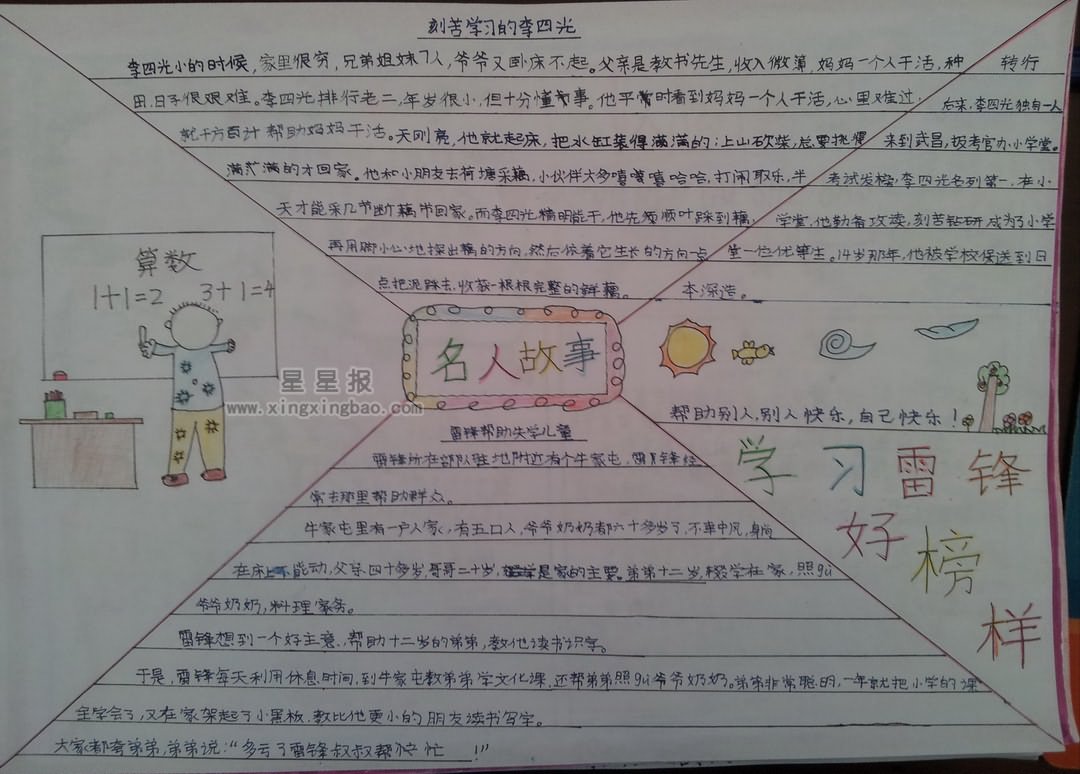 刻苦学习的李四光
李四光小的时候,家里很穷,兄弟姐妹7人,爷爷又卧床不起。父亲是教书先生,收入微薄,妈妈一个人干活,种
田,日子很艰难。李四光排行老二,年岁很小,但十分懂事。他平常时看到妈妈一个人干活,心里难过,
就千方百计帮助妈妈干活。天刚亮,他就起床,把水缸装得满满的;上山砍柴,总要挑得
满满的才回家。他和小朋友去荷塘采藕,小伙伴大多嘻嘻哈哈,打闹取乐,半
天才能采几节断藕节回家。而李四光精明能干,他先顺叶踩到藕,
再用脚小心地探出藕的方向,然后依着它生长的方向一点
点把泥踩去,收获一根根完整的鲜藕。
转行
后来,李四光独自一人
来到武昌,报考官办小学堂。
考试发榜,李四光名列第一,在小
学堂,他勤奋攻读,刻苦钻研成为了小学
堂一位优等生。14岁那年,他被学校保送到日
本深造。
算数
1+1=2 3+1=4
名人故事
星星报
www.xingxingbao.com
帮助别人,别人快乐,自己快乐!
学习雷锋
好榜
样
雷锋帮助失学儿童
雷锋所在部队驻地附近有个牛家屯,雷锋经
常去那里帮助群众。
牛家屯里有一户人家,有五口人,爷爷奶奶都六十多岁了,不幸中风,身
在床上不能动,父亲四十多岁,哥哥二十岁,是家的主要。弟弟十二岁,辍学在家,照gù
爷爷奶奶,料理家务。
雷锋想到一个好主意,帮助十二岁的弟弟,教他读书识字。
于是,雷锋每天利用休息时间,到牛家屯教弟弟学文化课,还帮弟弟照gù爷爷奶奶。弟弟非常聪明,一年就把小学的课
全学会了,又在家架起了小黑板,教比他更小的朋友读书写字。
大家都夸弟弟,弟弟说:“多亏了雷锋叔叔帮忙!”